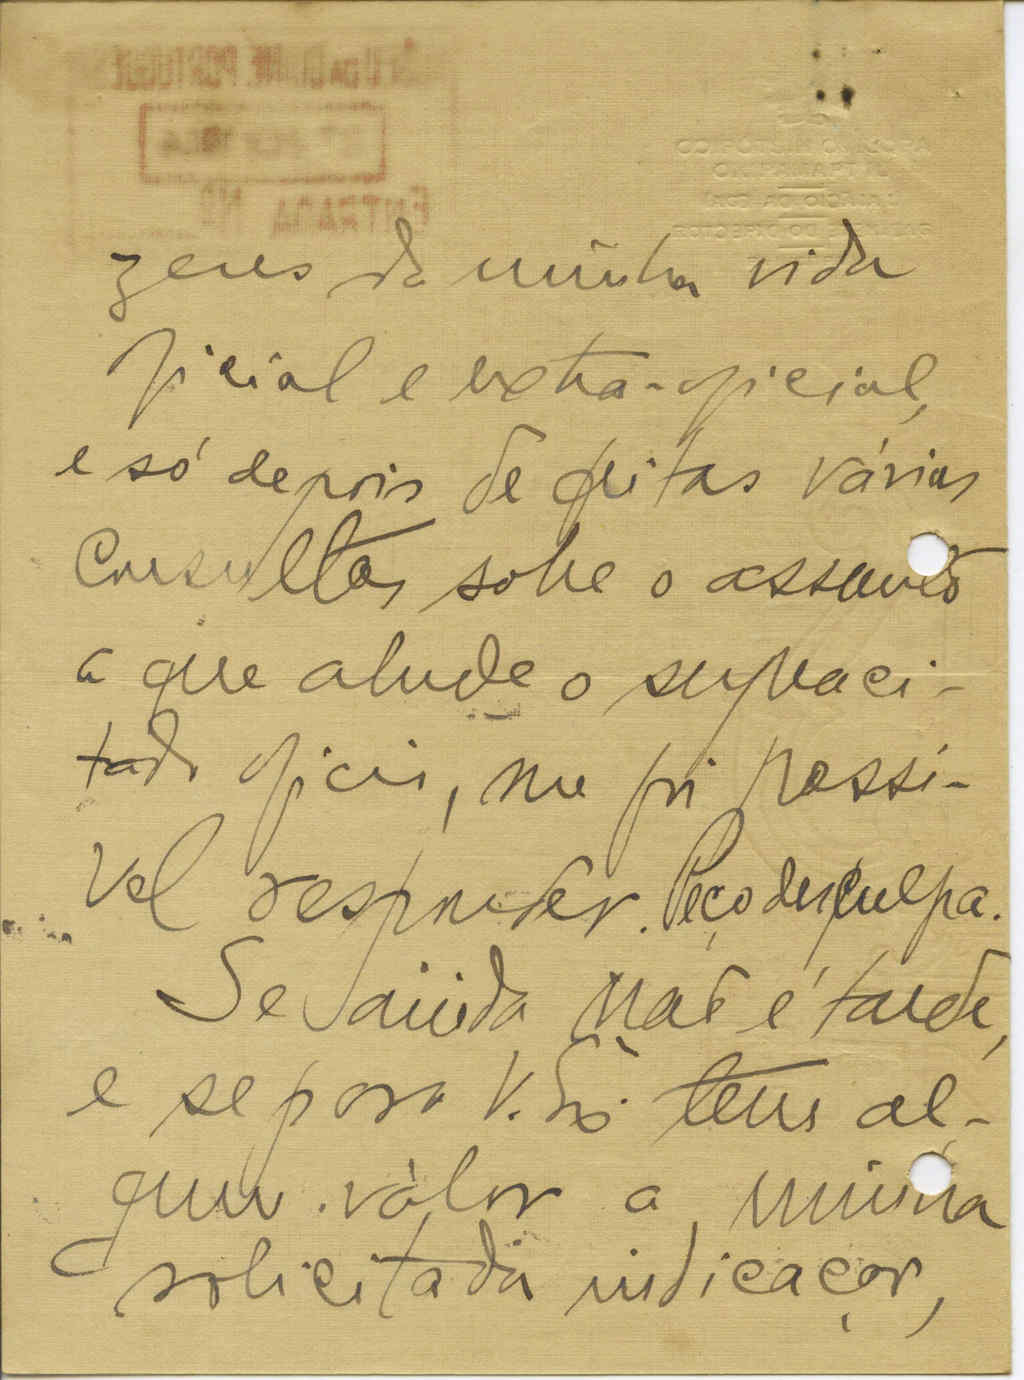 zens da minha vida
oficial e extra-oficial,
e só depois de feitas várias
Consultas sobre o assunto
a que alude o supraci-
tado oficio, me foi possí-
vel responder. Peço desculpa.
Se ainda não é tarde,
e se para V. Exª tem al-
gum valor a minha
solicitada indicação,